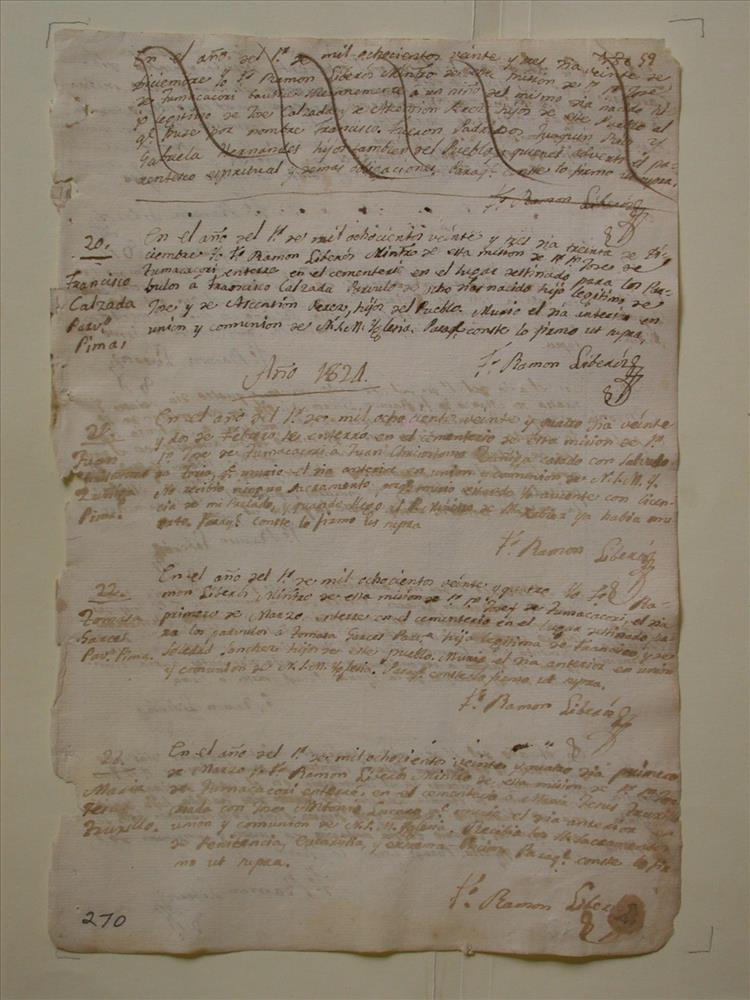 En el año del Sr. de mil ochocientos veinte y tres dia veinte de
Diciembre Yo Fr. Ramon Liberós Mintro de esta mision de Sn. Sn. Jose
de Tumacacori bautizé solemnemente a un niño del mismo dia nacido hi-
jo legitimo de Jose Calzada y de Asención Perez hijos de este Pueblo al
qe. puse por nombre Francisco, fueron Padrinos Joaquin y
Gabriela Hernandes hijos tambien del Pueblo a quienes adverti el pa-
rentesco espiritual y demas obligaciones, Paraqe. conste lo firmo ut supra.
Fr. Ramon Liberós
20.
Francisco
Calzada
Parvo.
Pima.
En el año del Sr. de mil ochocientos veinte y tres dia treinta de Di-
ciembre Yo Fr. Ramon Liberós Mintro de esta mision de Sn. Jose de
Tumacacori enterre en el cementerio en el lugar destinado para los Par-
bulos á Francisco Calzada Parvulo de ocho dias nacido hijo legitimo de
Jose y de Ascention Perez, hijos del Pueblo. Murio el dia anterior en
union y comunion de N. S. M. Yglesia. Paraqe. conste lo firmo ut supra.
Fr. Ramon Liberós
Año 1824.
21.
Juan
Zuñiga
Pima.
En el año del Sr. de mil ochociento veinte y quatro dia veinte
y dos de Febrero se enterro en el cementerio de esta mision de Sn.
Sn. Jose de Tumacacori a Juan Zuñiga casado con
qe. murio el dia anterior en union y comunion de N. S. M. Y.
No recibio ningun Sacramento porqe. murio estando Yo ausente con licen-
cia de mi Prelado, y quando llego el Pe. Mintro de ya habia mu-
erto. Paraqe. conste lo firmo ut supra
Fr. Ramon Liberós
22.
Tomasa
Garces
Parva. Pima.
En el año del Sr. de mil ochocientos veinte y quatro Yo Fr. Ra-
mon Liberós Mintro de esta mision de Sn. Sn. Josef de Tumacacori, el dia
primero de Marzo enterre en el cementerio en el lugar destinado pa-
ra los parvulos á Tomasa Garces Parvla. hija legitima de Francisco y de
Soledad Sanches hijos de este pueblo. Murio el dia anterior en union
y comunion de N. S. M. Yglesia. Paraqe. conste lo firmo ut supra.
Fr. Ramon Liberós
23.
Maria
Jesus
Truxillo.
En el año del Sr. de mil ochocientos veinte y quatro dia primero
de Marzo Yo Fr. Ramon Liberós Mintro de esta mision de Sn. Sn. Jose
de Tumacacori enterré en el cementerio á Maria Jesus Truxillo
casada con Jose Antonio qe. murio el dia anterior en
union y comunion de N. S. M. Yglesia. Recibio los Ss. Sacramentos
de Penitencia, Eucaristia, y extrema Uncion. Paraqe. conste lo fir-
mo ut supra.
Fr. Ramon Liberós
270